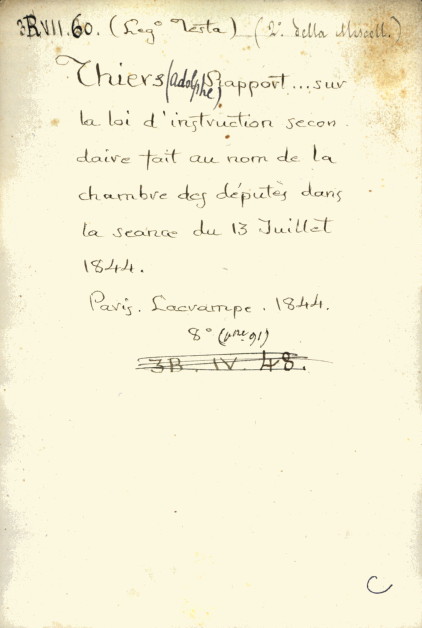 3B.VII.60. (Leg° Testa) (2° della Miscell.)
Thiers (Adolphe) Rapport... sur
la loi d'instruction secon
daire fait au nom de la
chambre des députès dans
la seance du 13 Juillet
1844.
Paris. Lacrampe. 1844.
8°
3B. IV. 48.
C